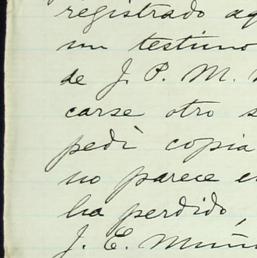 registrado aq
un testimo
de J. P. M.
carse otro s
pedi copia
no parece e
ha perdido,
J. E. Muñ